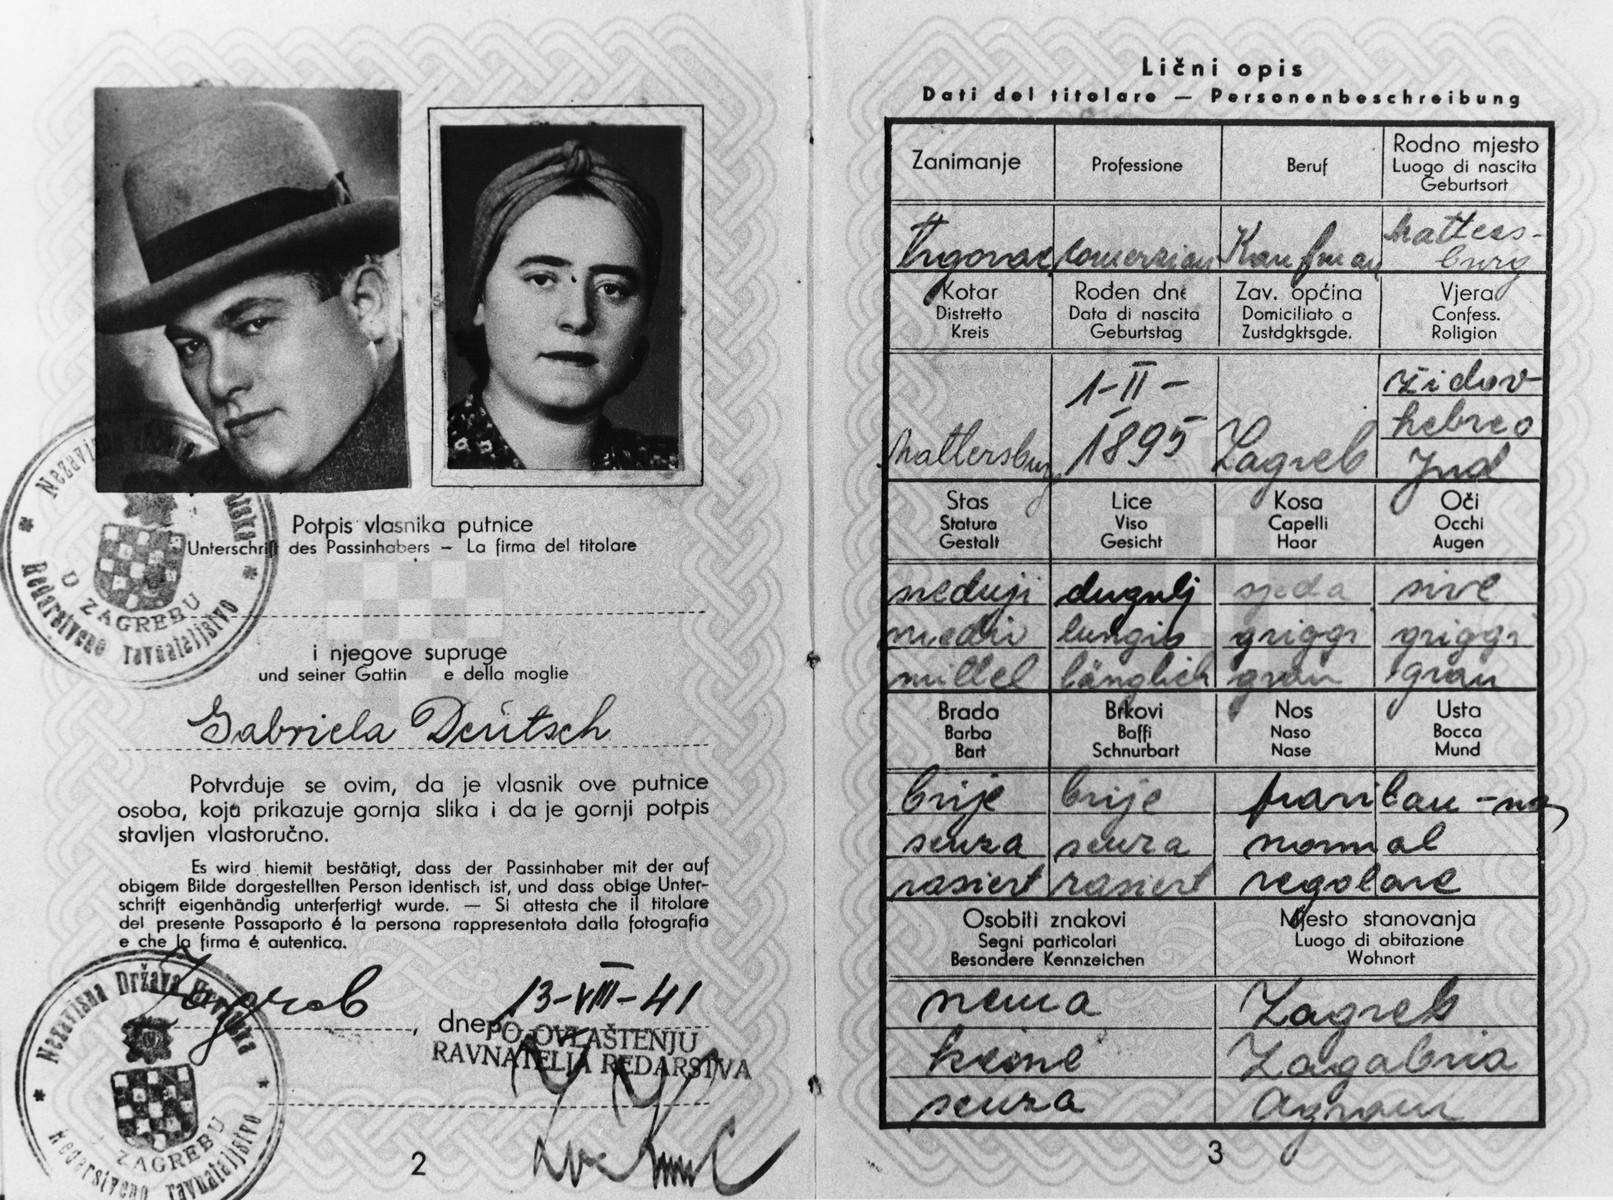 Potpis vlasnika putnice
Unterschrift des Passinhabers — La firma del titolare
i njegove supruge
und seiner Gattin e della moglie
Gabriela Deutsch
Potvrđuje se ovim, da je vlasnik ove putnice
osoba, koja prikazuje gornja slika i da je gornji potpis
stavljen vlastoručno.
Es wird hiemit bestätigt, dass der Passinhaber mit der auf
obigem Bilde dargestellten Person identisch ist, und dass obige Unter-
schrift eigenhändig unterfertigt wurde. — Si attesta che il titolare
del presente Passaporto é la persona rappresentata dalla fotografia
e che la firma é autentica.
Zagreb, dne 13-VIII-41
PO OVLAŠTENJU
RAVNATELJA REDARSTVA
Nezavisna Država Hrvatska
Redarstveno ravnateljstvo
U ZAGREBU
2
Lični opis
Dati del titolare — Personenbeschreibung
Zanimanje Professione Beruf Rodno mjesto
Luogo di nascita
Geburtsort
trgovac Kaufman Matters-
burg
Kotar Rođen dne Zav. općina Vjera
Distretto Data di nascita Domiciliato a Confess.
Kreis Geburtstag Zustdgktsgde. Roligion
Mattersburg 1-II-1895 Zagreb židov
hebreo
Jud
Stas Lice Kosa Oči
Statura Viso Capelli Occhi
Gestalt Gesicht Haar Augen
srednji dugulj sjeda sive
medio lungio griggi griggi
mittel länglich grau grau
Brada Brkovi Nos Usta
Barba Baffi Naso Bocca
Bart Schnurbart Nase Mund
brije brije pravilan-na
senza senza normal
rasiert rasiert regolare
Osobiti znakovi Mjesto stanovanja
Segni particolari Luogo di abitazione
Besondere Kennzeichen Wohnort
nema Zagreb
keine Zagabria
senza Agram
3